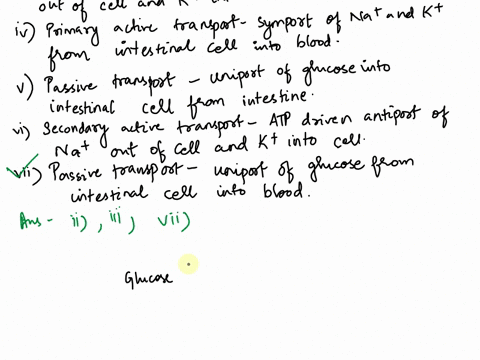 out of cell and K+
iv) Primary active transport- symport of Na+ and K+
from intestinal cell into blood.
v) Passive transport - uniport of glucose into
intestinal cell from intestine.
vi) Secondary active transport- ATP driven antiport of
Na+ out of cell and K+ into cell.
vii) Passive transport- uniport of glucose from
intestinal cell into blood.
Ans - ii), iii, vii)
Glucose